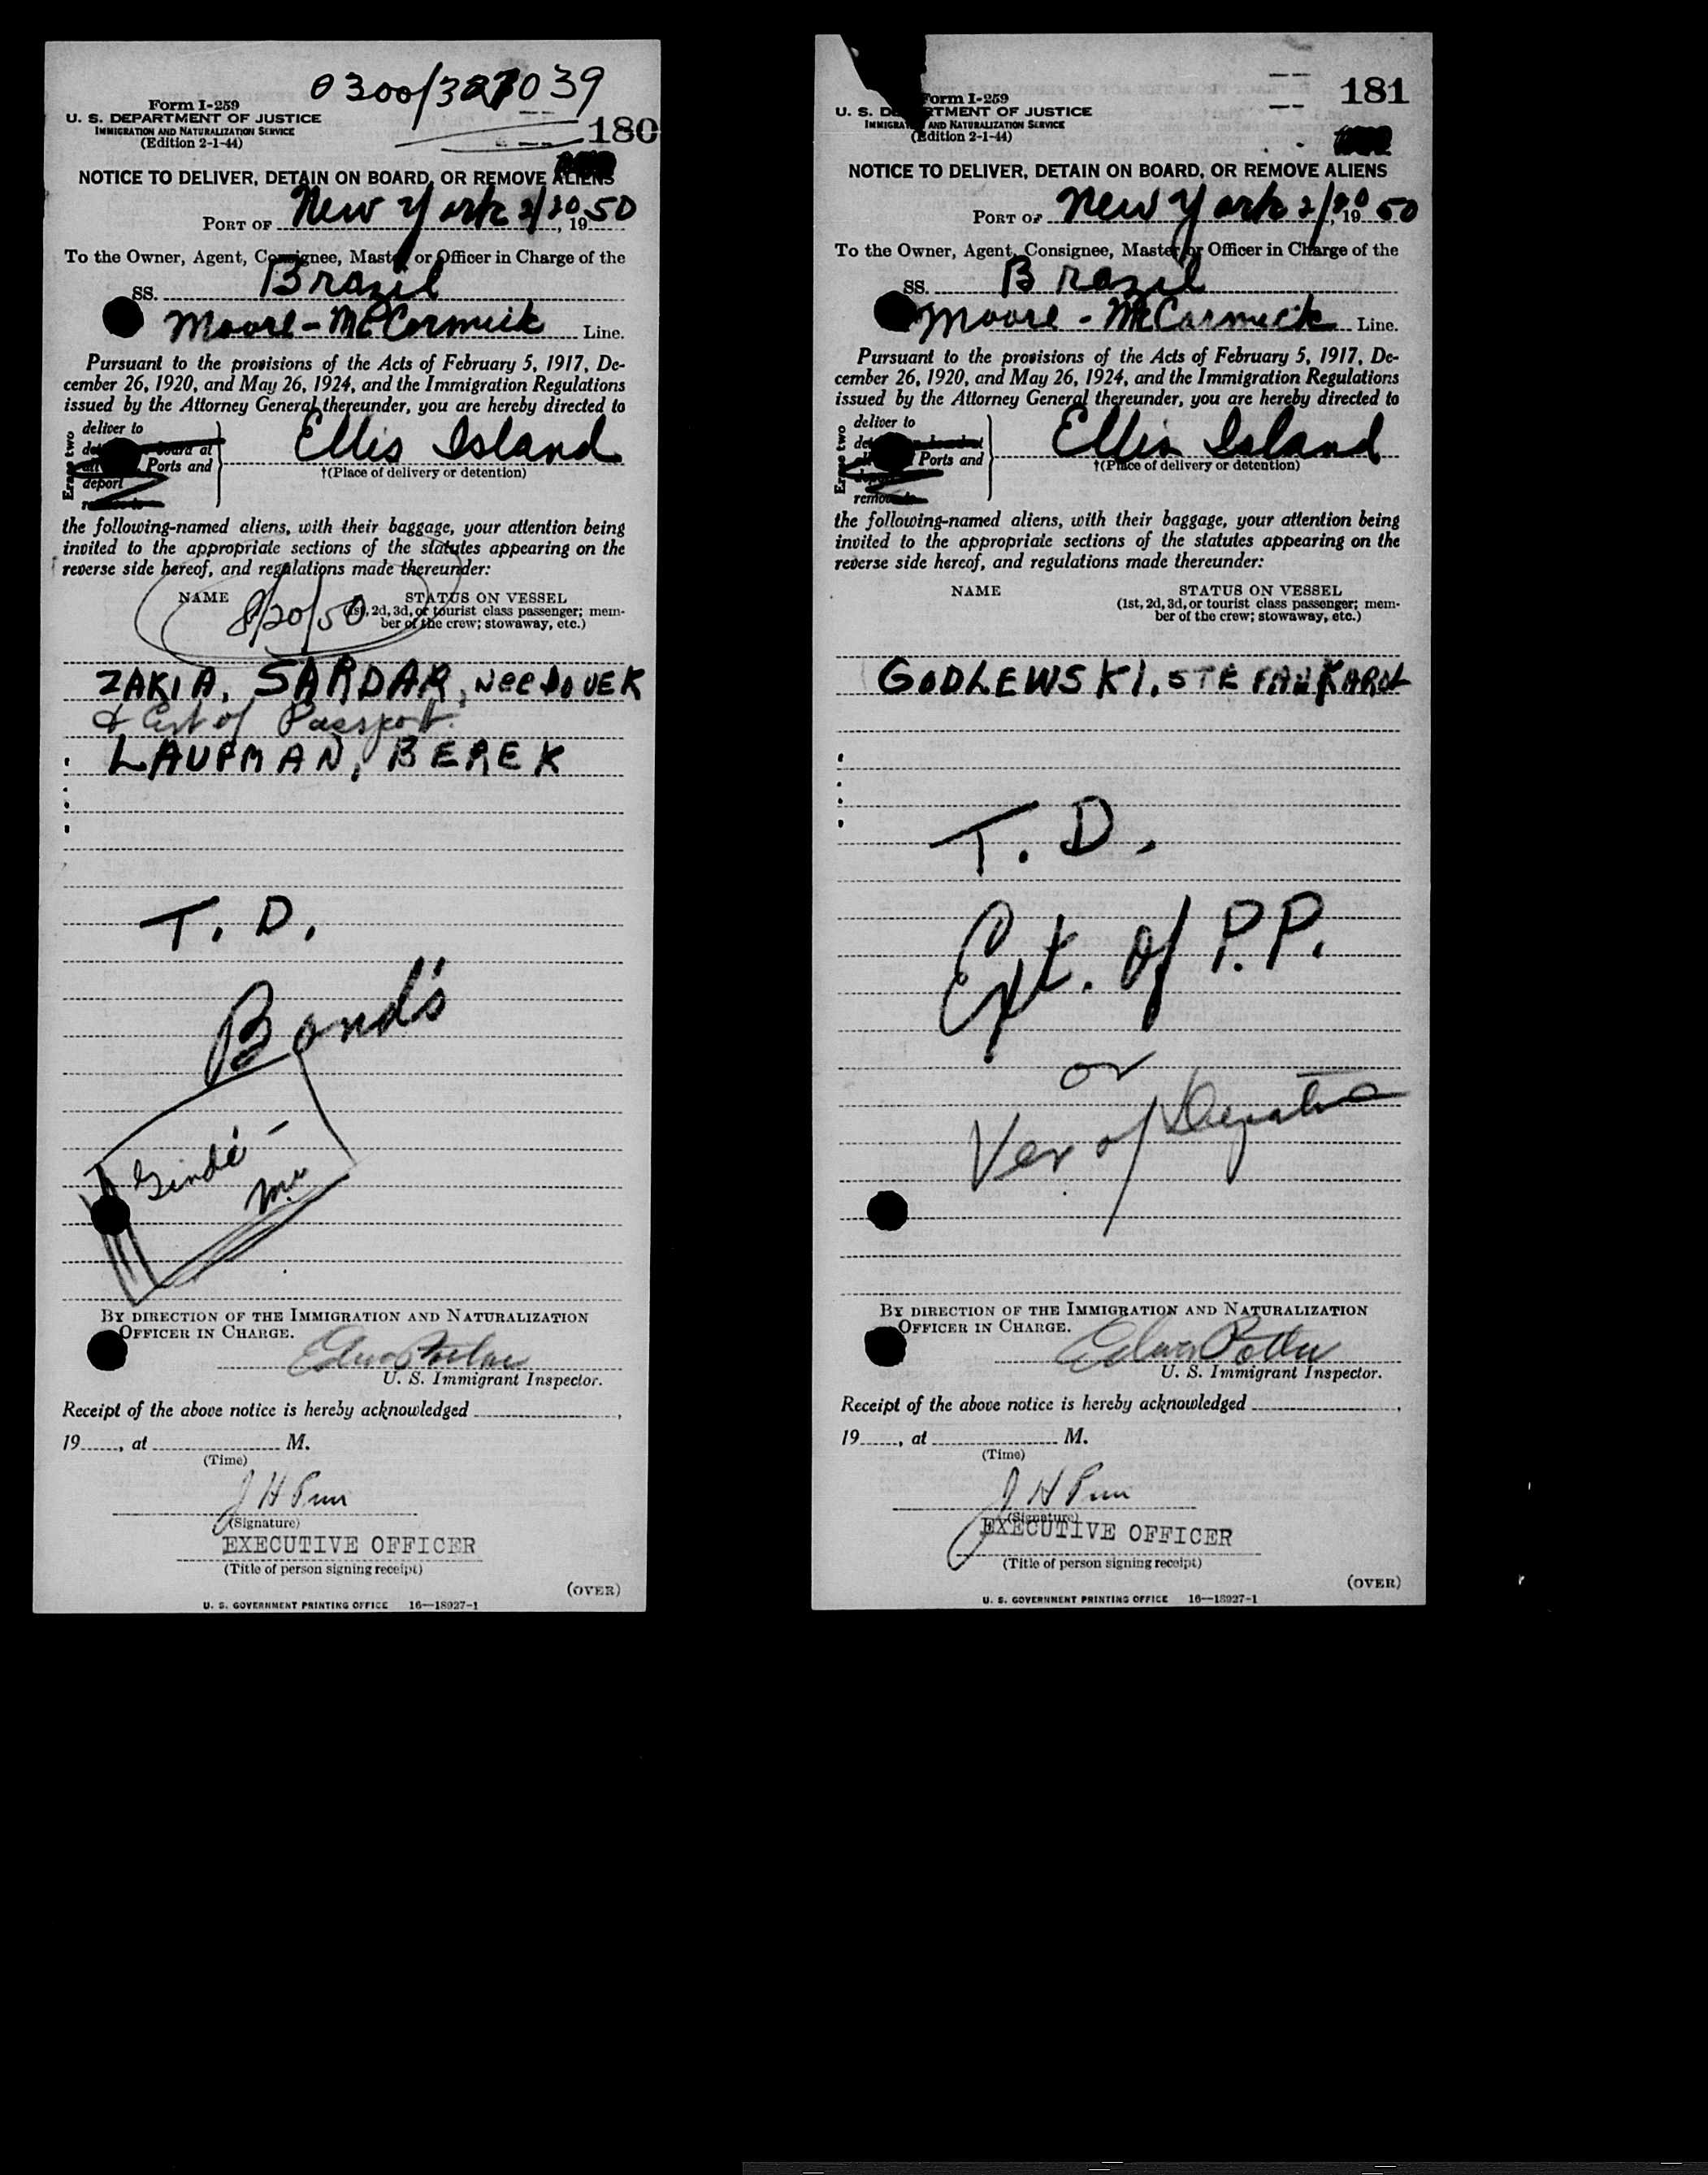 0300/327039
Form I-259
U. S. DEPARTMENT OF JUSTICE
IMMIGRATION AND NATURALIZATION SERVICE
(Edition 2-1-44)
180
NOTICE TO DELIVER, DETAIN ON BOARD, OR REMOVE ALIENS
PORT OF New York 2/20, 1950
To the Owner, Agent, Consignee, Master or Officer in Charge of the
SS. Brazil
Moore-McCormick Line.
Pursuant to the provisions of the Acts of February 5, 1917, De-
cember 26, 1920, and May 26, 1924, and the Immigration Regulations
issued by the Attorney General thereunder, you are hereby directed to
Erase two
deliver to
board at
Ports and
deport
Ellis Island
†(Place of delivery or detention)
the following-named aliens, with their baggage, your attention being
invited to the appropriate sections of the statutes appearing on the
reverse side hereof, and regulations made thereunder:
NAME
8/20/50
STATUS ON VESSEL
(1st, 2d, 3d, or tourist class passenger; mem-
ber of the crew; stowaway, etc.)
ZAKIA, SARDAR, Nee DOUEK
& Ext of Passport.
LAUFMAN, BEREK
T. D.
Bond's
Gindi -
BY DIRECTION OF THE IMMIGRATION AND NATURALIZATION
OFFICER IN CHARGE.
U. S. Immigrant Inspector.
Receipt of the above notice is hereby acknowledged ,
19 , at M.
(Time)
J H
(Signature)
EXECUTIVE OFFICER
(Title of person signing receipt)
(OVER)
U. S. GOVERNMENT PRINTING OFFICE 16—18927-1
181
Form I-259
U. S. DEPARTMENT OF JUSTICE
IMMIGRATION AND NATURALIZATION SERVICE
(Edition 2-1-44)
NOTICE TO DELIVER, DETAIN ON BOARD, OR REMOVE ALIENS
PORT OF New York 2/20, 1950
To the Owner, Agent, Consignee, Master or Officer in Charge of the
SS. Brazil
Moore-McCormick Line.
Pursuant to the provisions of the Acts of February 5, 1917, De-
cember 26, 1920, and May 26, 1924, and the Immigration Regulations
issued by the Attorney General thereunder, you are hereby directed to
Erase two
deliver to
Ports and
remove to
Ellis Island
†(Place of delivery or detention)
the following-named aliens, with their baggage, your attention being
invited to the appropriate sections of the statutes appearing on the
reverse side hereof, and regulations made thereunder:
NAME
STATUS ON VESSEL
(1st, 2d, 3d, or tourist class passenger; mem-
ber of the crew; stowaway, etc.)
GODLEWSKI, STEFAN KAROL
T. D.
Ext. of P.P.
or
Ver of Departure
BY DIRECTION OF THE IMMIGRATION AND NATURALIZATION
OFFICER IN CHARGE.
U. S. Immigrant Inspector.
Receipt of the above notice is hereby acknowledged ,
19 , at M.
(Time)
J H
(Signature)
EXECUTIVE OFFICER
(Title of person signing receipt)
(OVER)
U. S. GOVERNMENT PRINTING OFFICE 16—18927-1